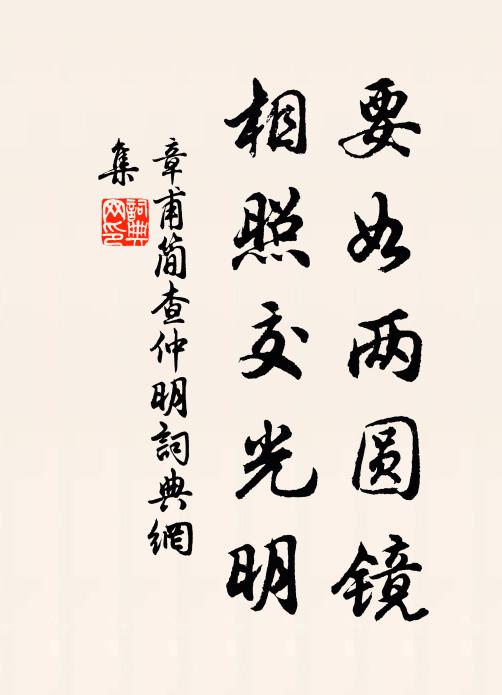 要如两圆镜
相照交光明
章甫简查仲明詞典網
集
詞典
网印